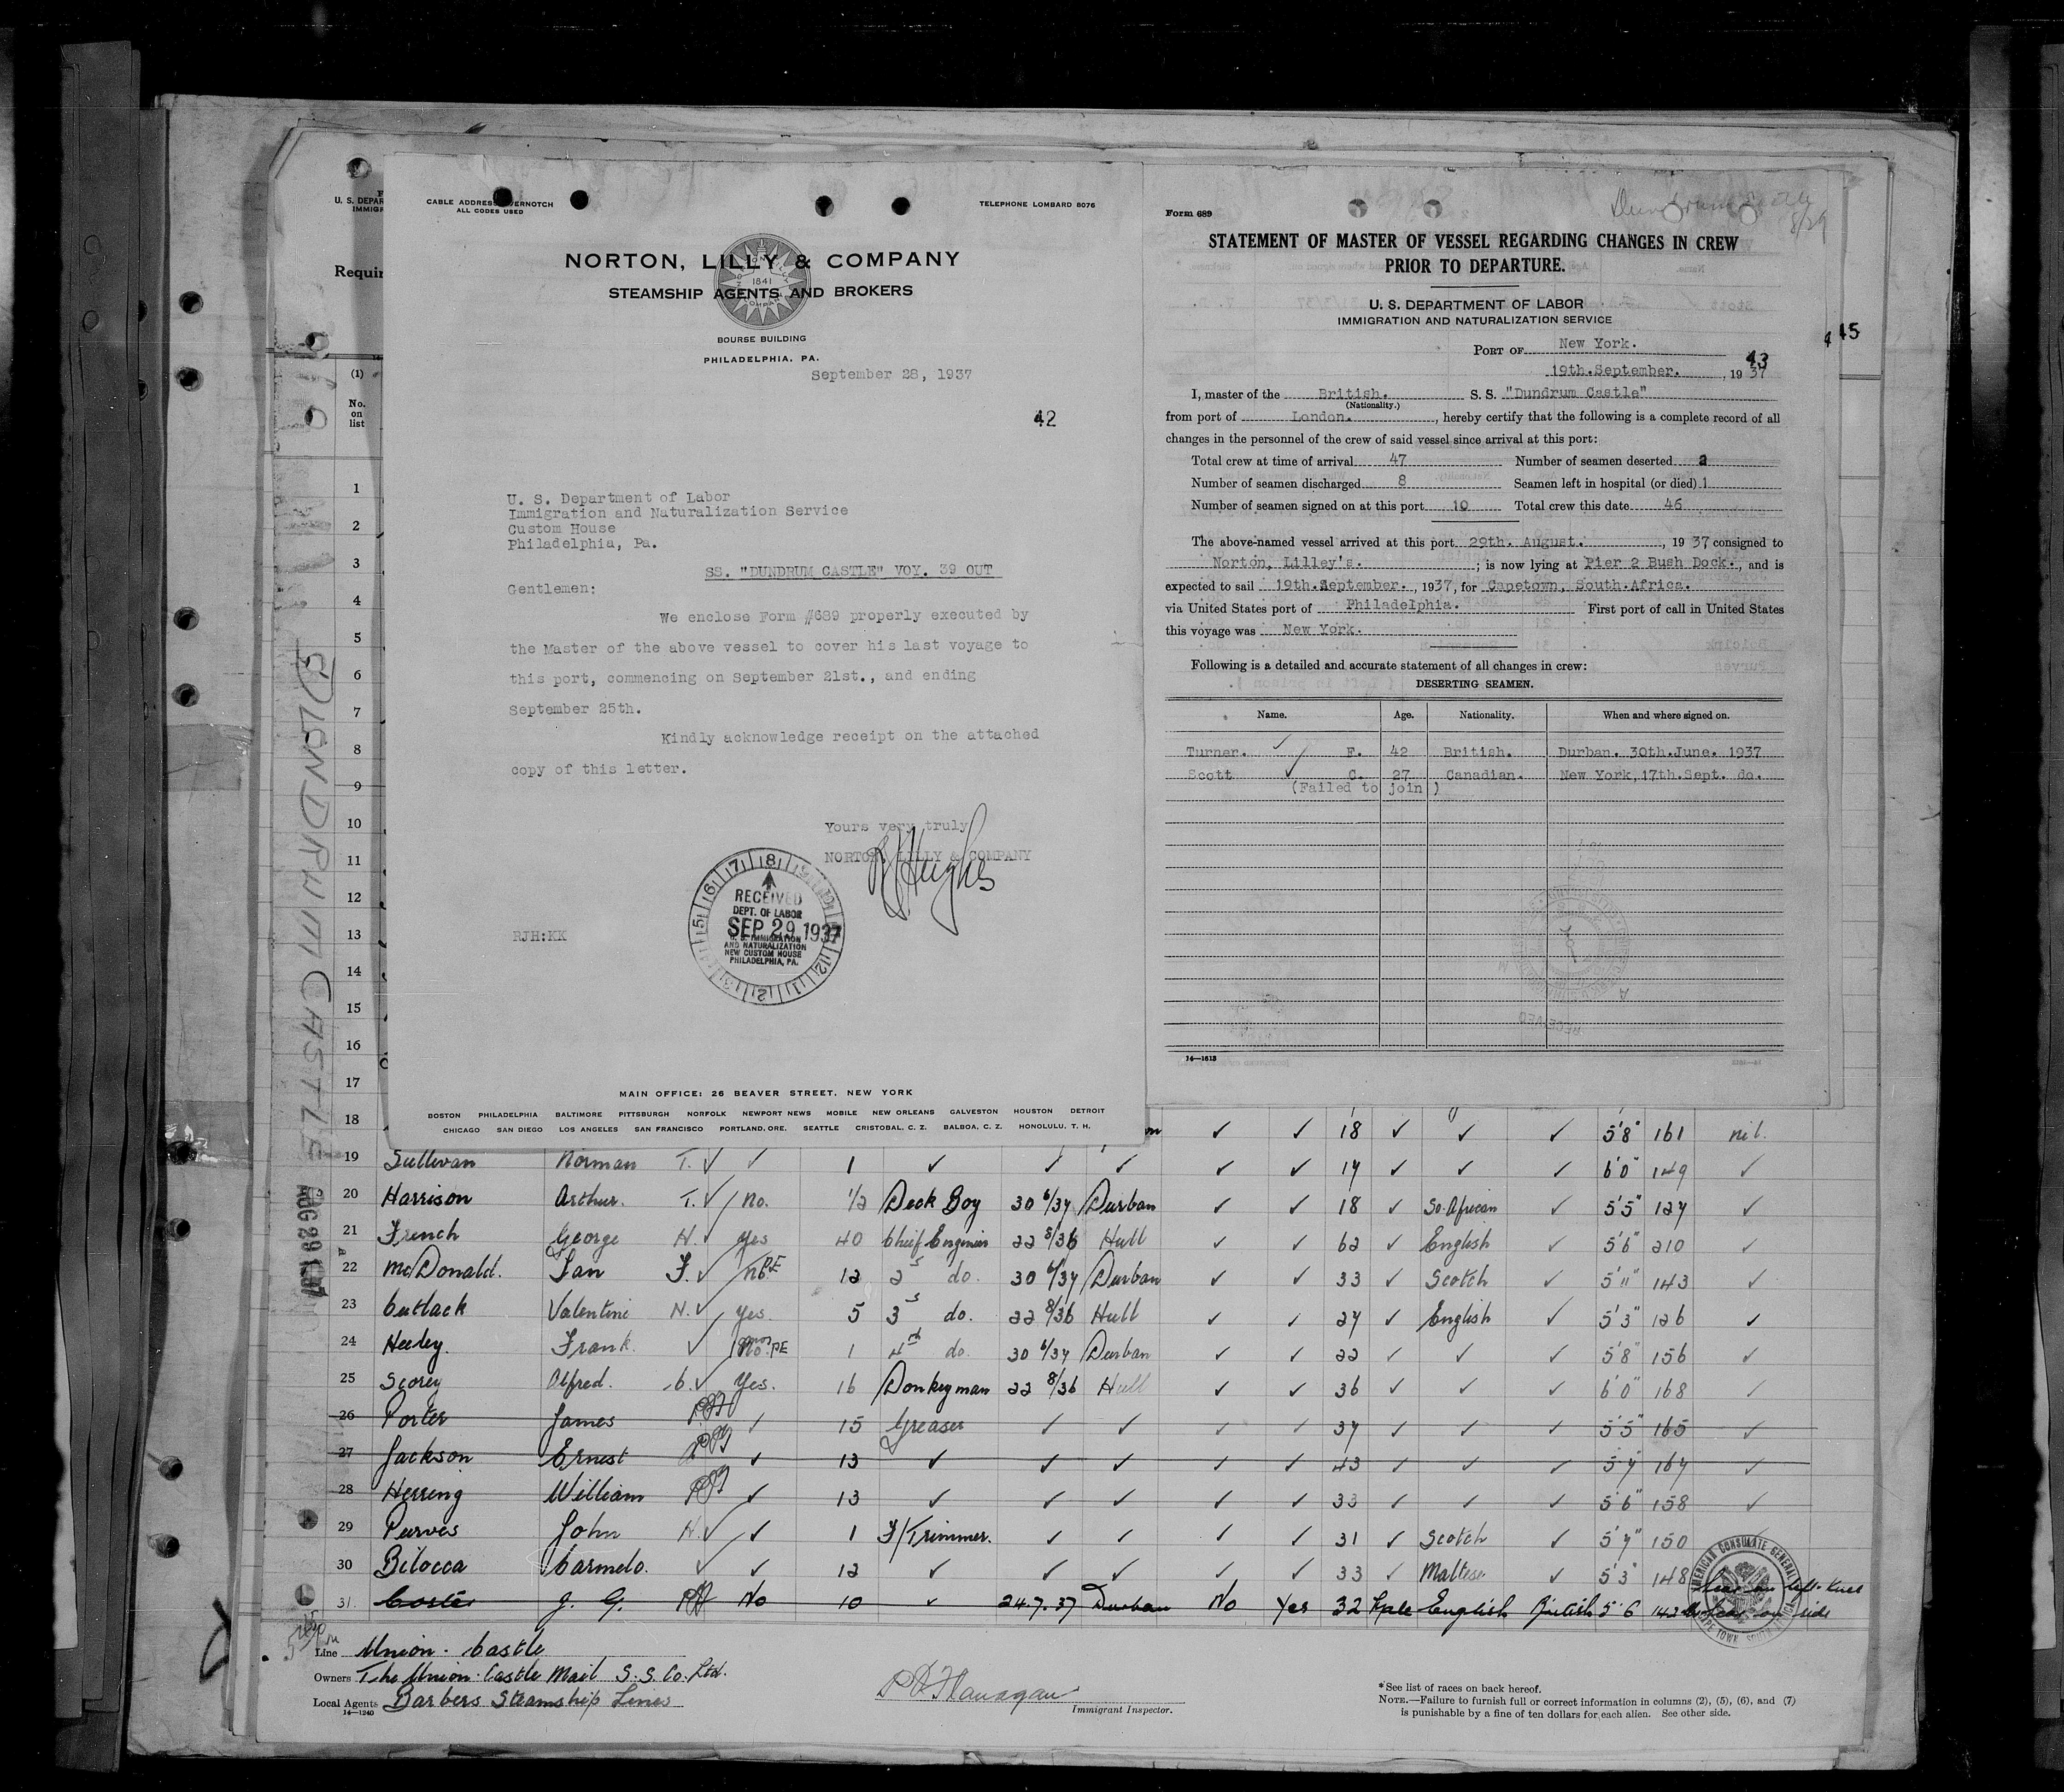 CABLE ADDRESS
ALL CODES USED
TELEPHONE LOMBARD 8076
NORTON, LILLY & COMPANY
STEAMSHIP AGENTS AND BROKERS
1841
BOURSE BUILDING
PHILADELPHIA, PA.
September 28, 1937
42
U. S. Department of Labor
Immigration and Naturalization Service
Custom House
Philadelphia, Pa.
SS. "DUNDRUM CASTLE" VOY. 39 OUT
Gentlemen:
We enclose Form #689 properly executed by
the Master of the above vessel to cover his last voyage to
this port, commencing on September 21st., and ending
September 25th.
Kindly acknowledge receipt on the attached
copy of this letter.
Yours very truly
NORTON, LILLY & COMPANY
RJHughes
RECEIVED
DEPT. OF LABOR
SEP 29 1937
U. S. IMMIGRATION
AND NATURALIZATION
NEW CUSTOM HOUSE
PHILADELPHIA, PA.
RJH:KK
MAIN OFFICE: 26 BEAVER STREET, NEW YORK
BOSTON PHILADELPHIA BALTIMORE PITTSBURGH NORFOLK NEWPORT NEWS MOBILE NEW ORLEANS GALVESTON HOUSTON DETROIT
CHICAGO SAN DIEGO LOS ANGELES SAN FRANCISCO PORTLAND, ORE. SEATTLE CRISTOBAL, C. Z. BALBOA, C. Z. HONOLULU, T. H.
Form 689
Dundrum Castle
8/29
STATEMENT OF MASTER OF VESSEL REGARDING CHANGES IN CREW
PRIOR TO DEPARTURE.
U. S. DEPARTMENT OF LABOR
IMMIGRATION AND NATURALIZATION SERVICE
45
PORT OF New York.
43
19th.September. , 1937
I, master of the British. S. S. "Dundrum Castle"
(Nationality.)
from port of London. , hereby certify that the following is a complete record of all
changes in the personnel of the crew of said vessel since arrival at this port:
Total crew at time of arrival 47 Number of seamen deserted 2
Number of seamen discharged 8 Seamen left in hospital (or died) 1
Number of seamen signed on at this port 10 Total crew this date 46
The above-named vessel arrived at this port 29th. August. , 1937 consigned to
Norton, Lilley's. ; is now lying at Pier 2 Bush Dock. , and is
expected to sail 19th.September. , 1937, for Capetown, South.Africa.
via United States port of Philadelphia. First port of call in United States
this voyage was New York.
Following is a detailed and accurate statement of all changes in crew:
DESERTING SEAMEN.
Name. Age. Nationality. When and where signed on.
Turner. ✓ F. 42 British. Durban. 30th.June. 1937
Scott ✓ C. 27 Canadian. New York, 17th.Sept. do.
(Failed to join )
14—1613
U. S. DEPAR
IMMIGR
Requir
(1)
No.
on
list
1
2
3
4
5
6
7
8
9
10
11
12
13
14
15
16
17
DUNDRUM CASTLE
AUG 29 1937
18 ✓ ✓ 18 ✓ ✓ ✓ 5'8" 161 nil.
19 Sullivan Norman T. ✓ ✓ 1 ✓ ✓ ✓ ✓ ✓ 17 ✓ ✓ ✓ 6'0" 149 ✓
20 Harrison Arthur. T. ✓ No. 1/2 Deck Boy 30 6/37 Durban ✓ ✓ 18 ✓ So. African ✓ 5'5" 127 ✓
21 French George H. ✓ Yes 40 Chief Engineer 22 8/36 Hull ✓ ✓ 62 ✓ English ✓ 5'6" 210 ✓
22 McDonald. Ian F. ✓ No. PE 12 2 do. 30 6/37 Durban ✓ ✓ 33 ✓ Scotch ✓ 5'11" 143 ✓
23 Cutlack Valentine N. ✓ Yes. 5 3 do. 22 8/36 Hull ✓ ✓ 27 ✓ English ✓ 5'3" 126 ✓
24 Heeley. Frank. ✓ No. PE 1 4th do. 30 6/37 Durban ✓ ✓ 22 ✓ ✓ ✓ 5'8" 156 ✓
25 Scorey Alfred. ✓ Yes. 16 Donkeyman 22 8/36 Hull ✓ ✓ 36 ✓ ✓ ✓ 6'0" 168 ✓
26 Porter James ✓ 15 Greaser ✓ ✓ ✓ ✓ 37 ✓ ✓ ✓ 5'5" 165 ✓
27 Jackson Ernest ✓ 13 ✓ ✓ ✓ ✓ ✓ 43 ✓ ✓ ✓ 5'7" 167 ✓
28 Herring William ✓ 13 ✓ ✓ ✓ ✓ ✓ 33 ✓ ✓ ✓ 5'6" 158 ✓
29 Purves John H. ✓ ✓ 1 F/Trimmer. ✓ ✓ ✓ ✓ 31 ✓ Scotch ✓ 5'7" 150 ✓
30 Bilocca Carmelo. ✓ ✓ 12 ✓ ✓ ✓ ✓ ✓ 33 ✓ Maltese ✓ 5'3" 148
31. Coste J. G. No 10 ✓ 24.7.37 Durban No Yes 32 English British 5'6 143 scar on left knee
AMERICAN CONSULATE GENERAL
CAPE TOWN SOUTH AFRICA
Line Union-Castle
Owners The Union-Castle Mail S.S. Co. Ltd.
Local Agents Barbers Steamship Lines
14—1240
Flanagan
Immigrant Inspector.
*See list of races on back hereof.
NOTE.—Failure to furnish full or correct information in columns (2), (5), (6), and (7)
is punishable by a fine of ten dollars for each alien. See other side.